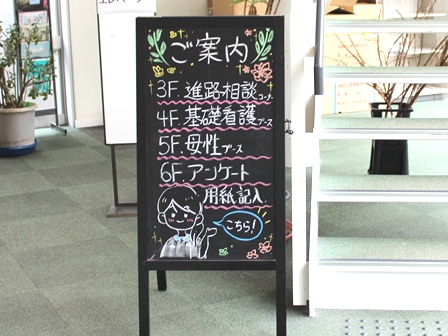 ご案内
3F. 進路相談コーナー
4F. 基礎看護ブース
5F. 母性ブース
6F. アンケート
用紙記入
こちら!